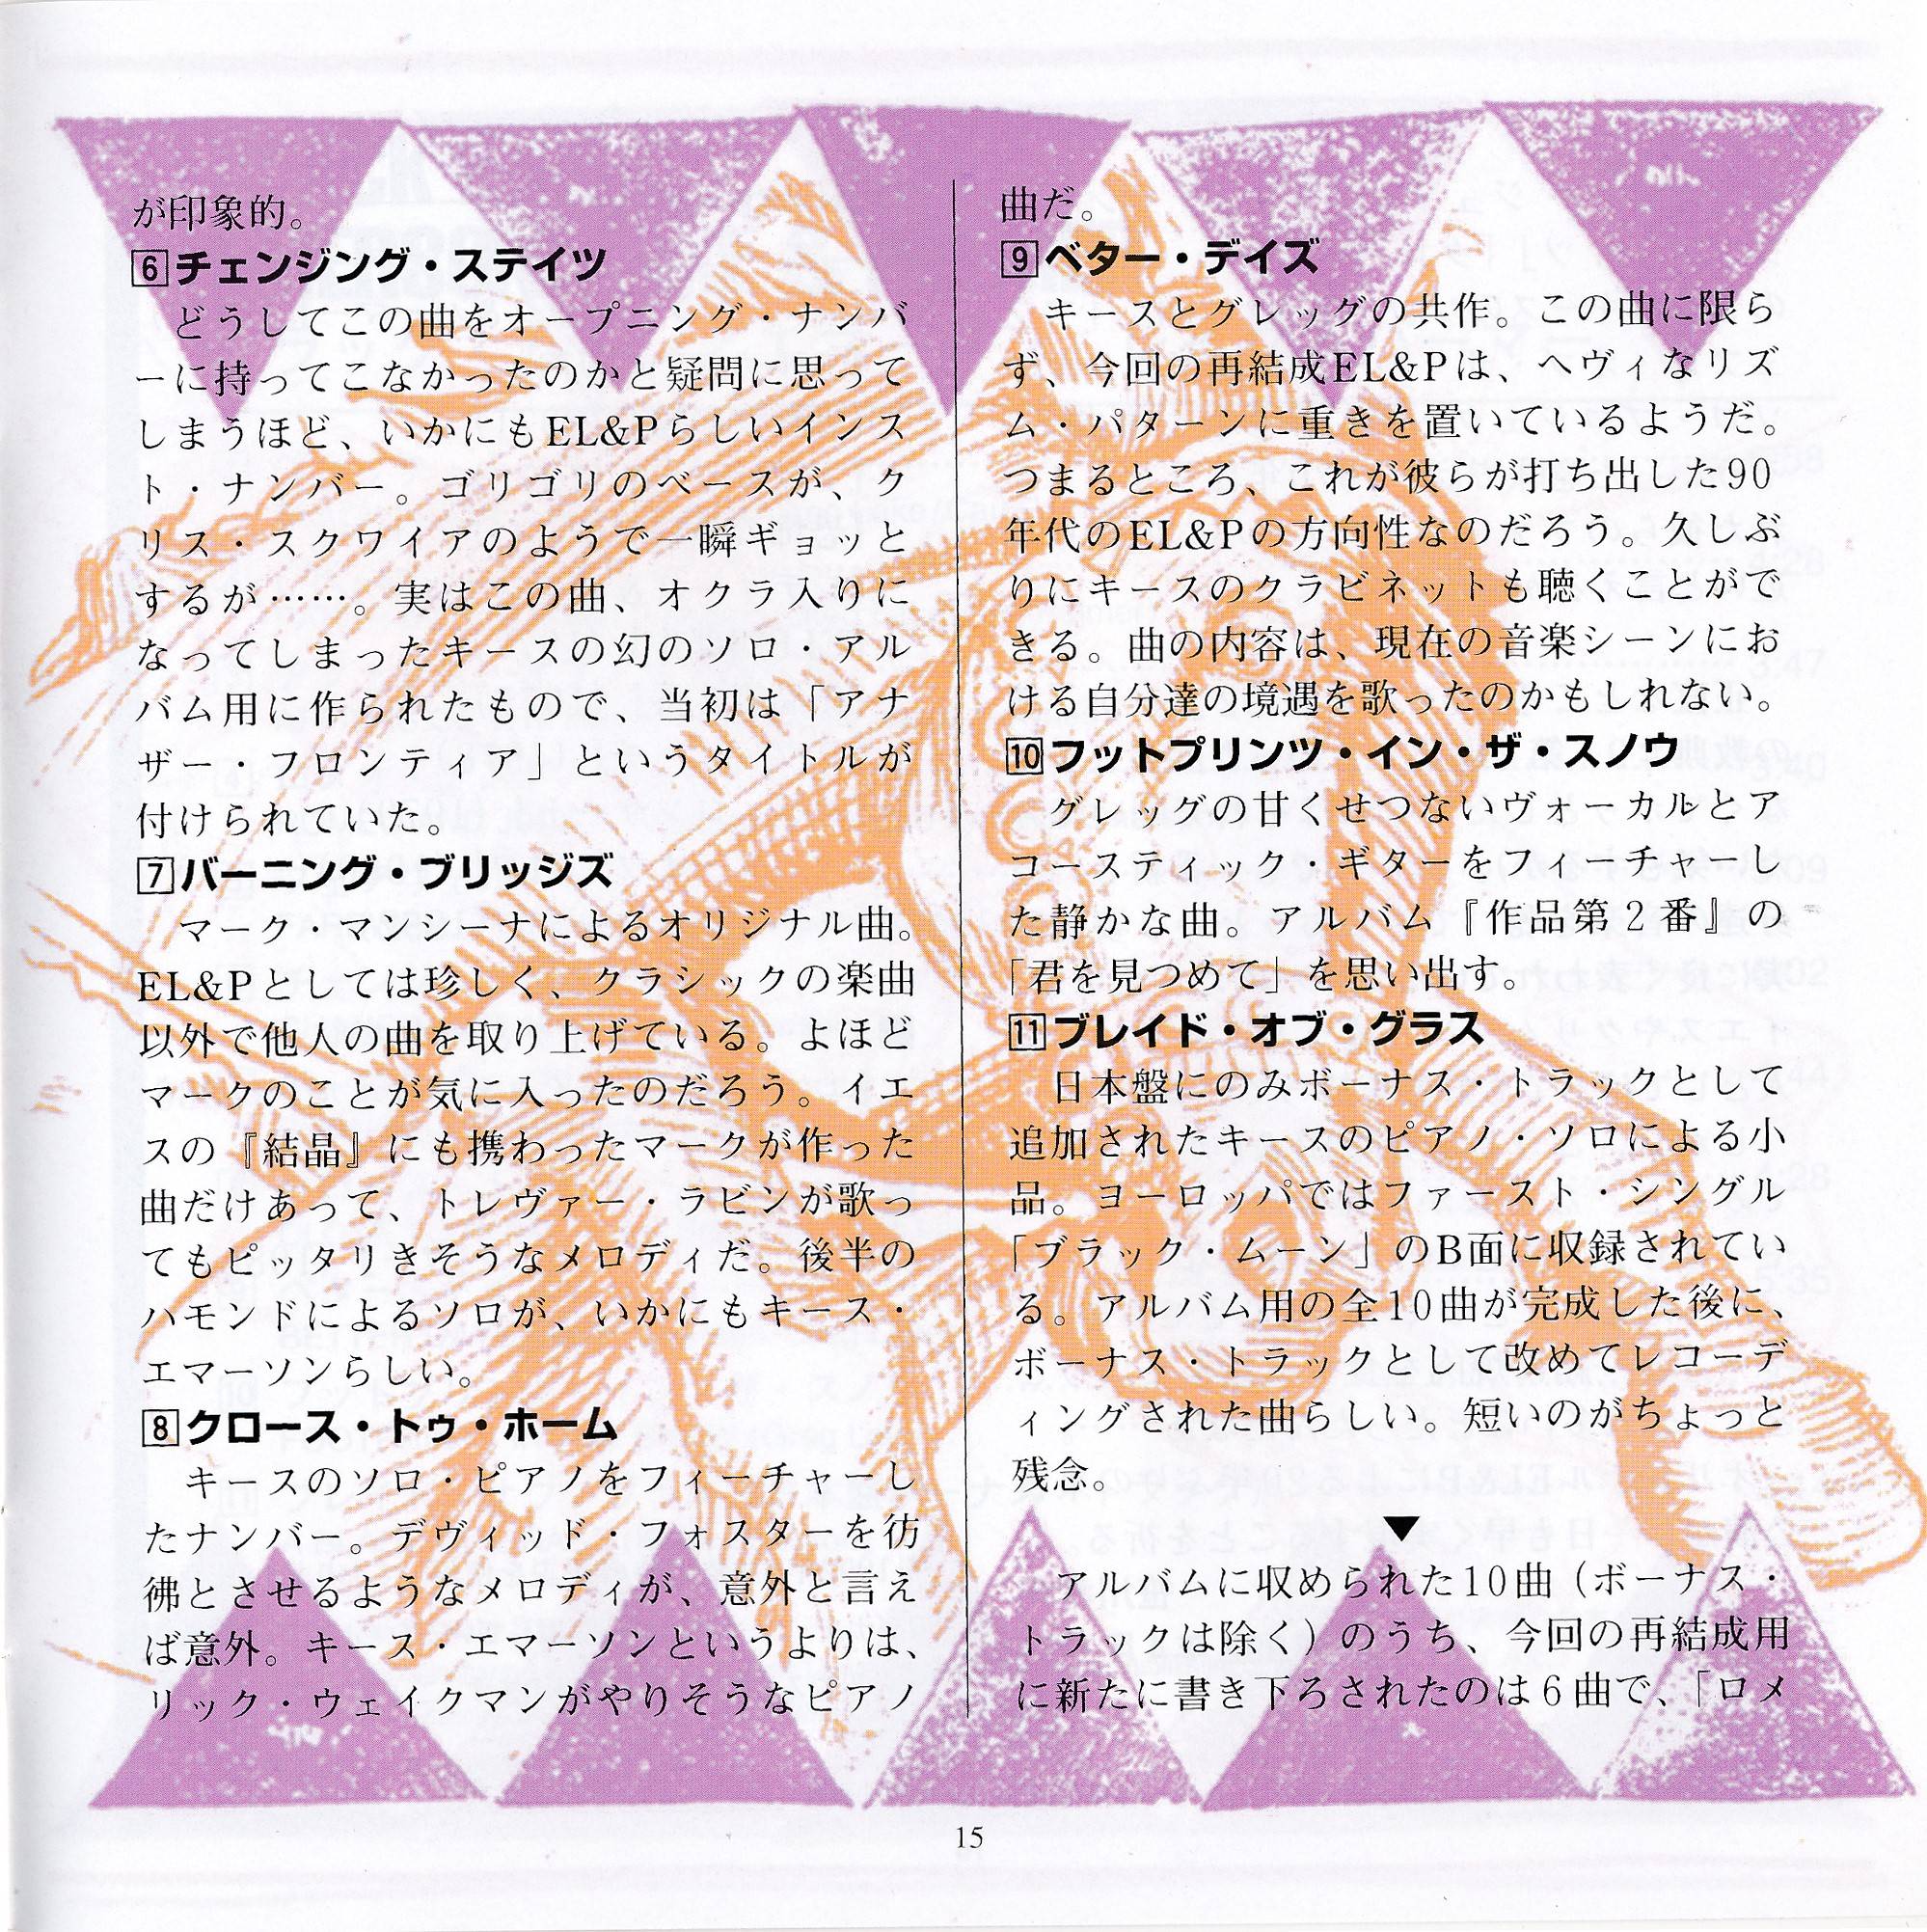 が印象的。
6チェンジング・ステイツ
どうしてこの曲をオープニング・ナンバ
ーに持ってこなかったのかと疑問に思って
しまうほど、いかにもEL&Pらしいインス
ト・ナンバー。ゴリゴリのベースが、ク
リス・スクワイアのようで一瞬ギョッと
するが……。実はこの曲、オクラ入りに
なってしまったキースの幻のソロ・アル
バム用に作られたもので、当初は「アナ
ザー・フロンティア」というタイトルが
付けられていた。
7バーニング・ブリッジズ
マーク・マンシーナによるオリジナル曲。
EL&Pとしては珍しく、クラシックの楽曲
以外で他人の曲を取り上げている。よほど
マークのことが気に入ったのだろう。イエ
スの『結晶』にも携わったマークが作った
曲だけあって、トレヴァー・ラビンが歌っ
てもピッタリきそうなメロディだ。後半の
ハモンドによるソロが、いかにもキース・
エマーソンらしい。
8クロース・トゥ・ホーム
キースのソロ・ピアノをフィーチャーし
たナンバー。デヴィッド・フォスターを彷
彿とさせるようなメロディが、意外と言え
ば意外。キース・エマーソンというよりは、
リック・ウェイクマンがやりそうなピアノ
曲だ。
9ベター・デイズ
キースとグレッグの共作。この曲に限ら
ず、今回の再結成EL&Pは、ヘヴィなリズ
ム・パターンに重きを置いているようだ。
つまるところ、これが彼らが打ち出した90
年代のEL&Pの方向性なのだろう。久しぶ
りにキースのクラビネットも聴くことがで
きる。曲の内容は、現在の音楽シーンにお
ける自分達の境遇を歌ったのかもしれない。
10フットプリンツ・イン・ザ・スノウ
グレッグの甘くせつないヴォーカルとア
コースティック・ギターをフィーチャーし
た静かな曲。アルバム『作品第2番』の
「君を見つめて」を思い出す。
11ブレイド・オブ・グラス
日本盤にのみボーナス・トラックとして
追加されたキースのピアノ・ソロによる小
品。ヨーロッパではファースト・シングル
「ブラック・ムーン」のB面に収録されてい
る。アルバム用の全10曲が完成した後に、
ボーナス・トラックとして改めてレコーデ
ィングされた曲らしい。短いのがちょっと
残念。
▼
アルバムに収められた10曲（ボーナス・
トラックは除く）のうち、今回の再結成用
に新たに書き下ろされたのは6曲で、「ロメ
15